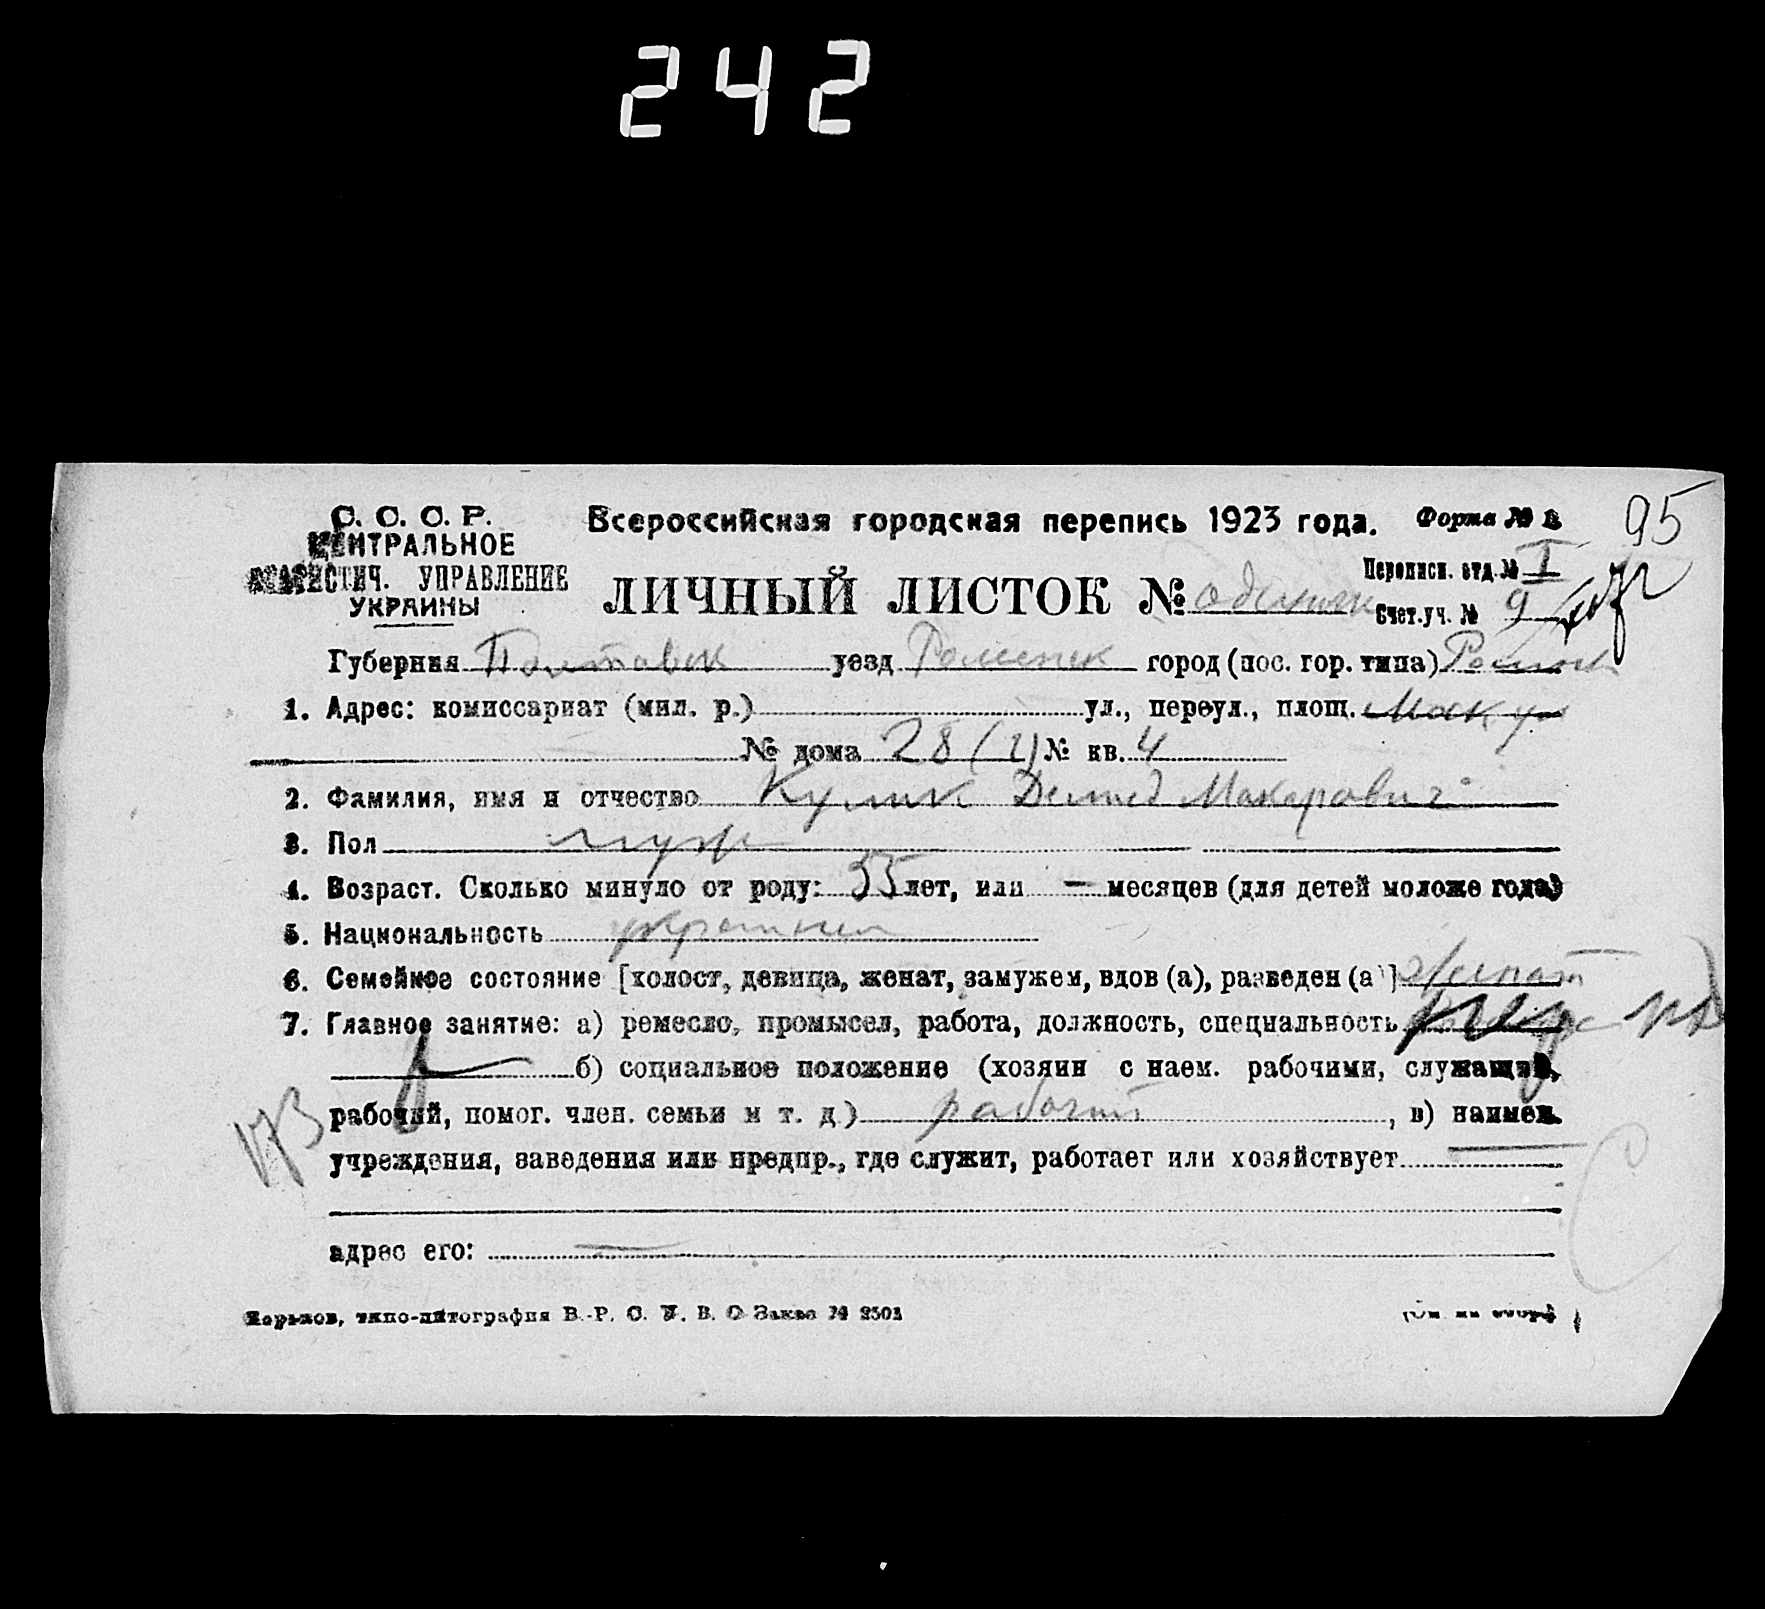 242
С. С. С. Р.
ЦЕНТРАЛЬНОЕ
СТАТИСТИЧ. УПРАВЛЕНИЕ
УКРАИНЫ
Всероссийская городская перепись 1923 года.
Форма №
95
ЛИЧНЫЙ ЛИСТОК №
Переписн. отд. № I
Счет. уч. № 9
Губерния Полтавск уезд Роменск город (пос. гор. типа)
1. Адрес: комиссариат (мил. р.) ул., переул., площ.
№ дома 28 № кв. 4
2. Фамилия, имя и отчество Кулик Демид Макарович
3. Пол муж
4. Возраст. Сколько минуло от роду: лет, или — месяцев (для детей моложе года)
5. Национальность украинец
6. Семейное состояние [холост, девица, женат, замужем, вдов (а), разведен (а)] женат
7. Главное занятие: а) ремесло, промысел, работа, должность, специальность
б) социальное положение (хозяин с наем. рабочими, служащий,
рабочий, помог. член. семьи и т. д.) рабочий, в) наимен.
учреждения, заведения или предпр., где служит, работает или хозяйствует
адрес его: —
Харьков, типо-литография В.-Р. С. У. В. О Заказ №